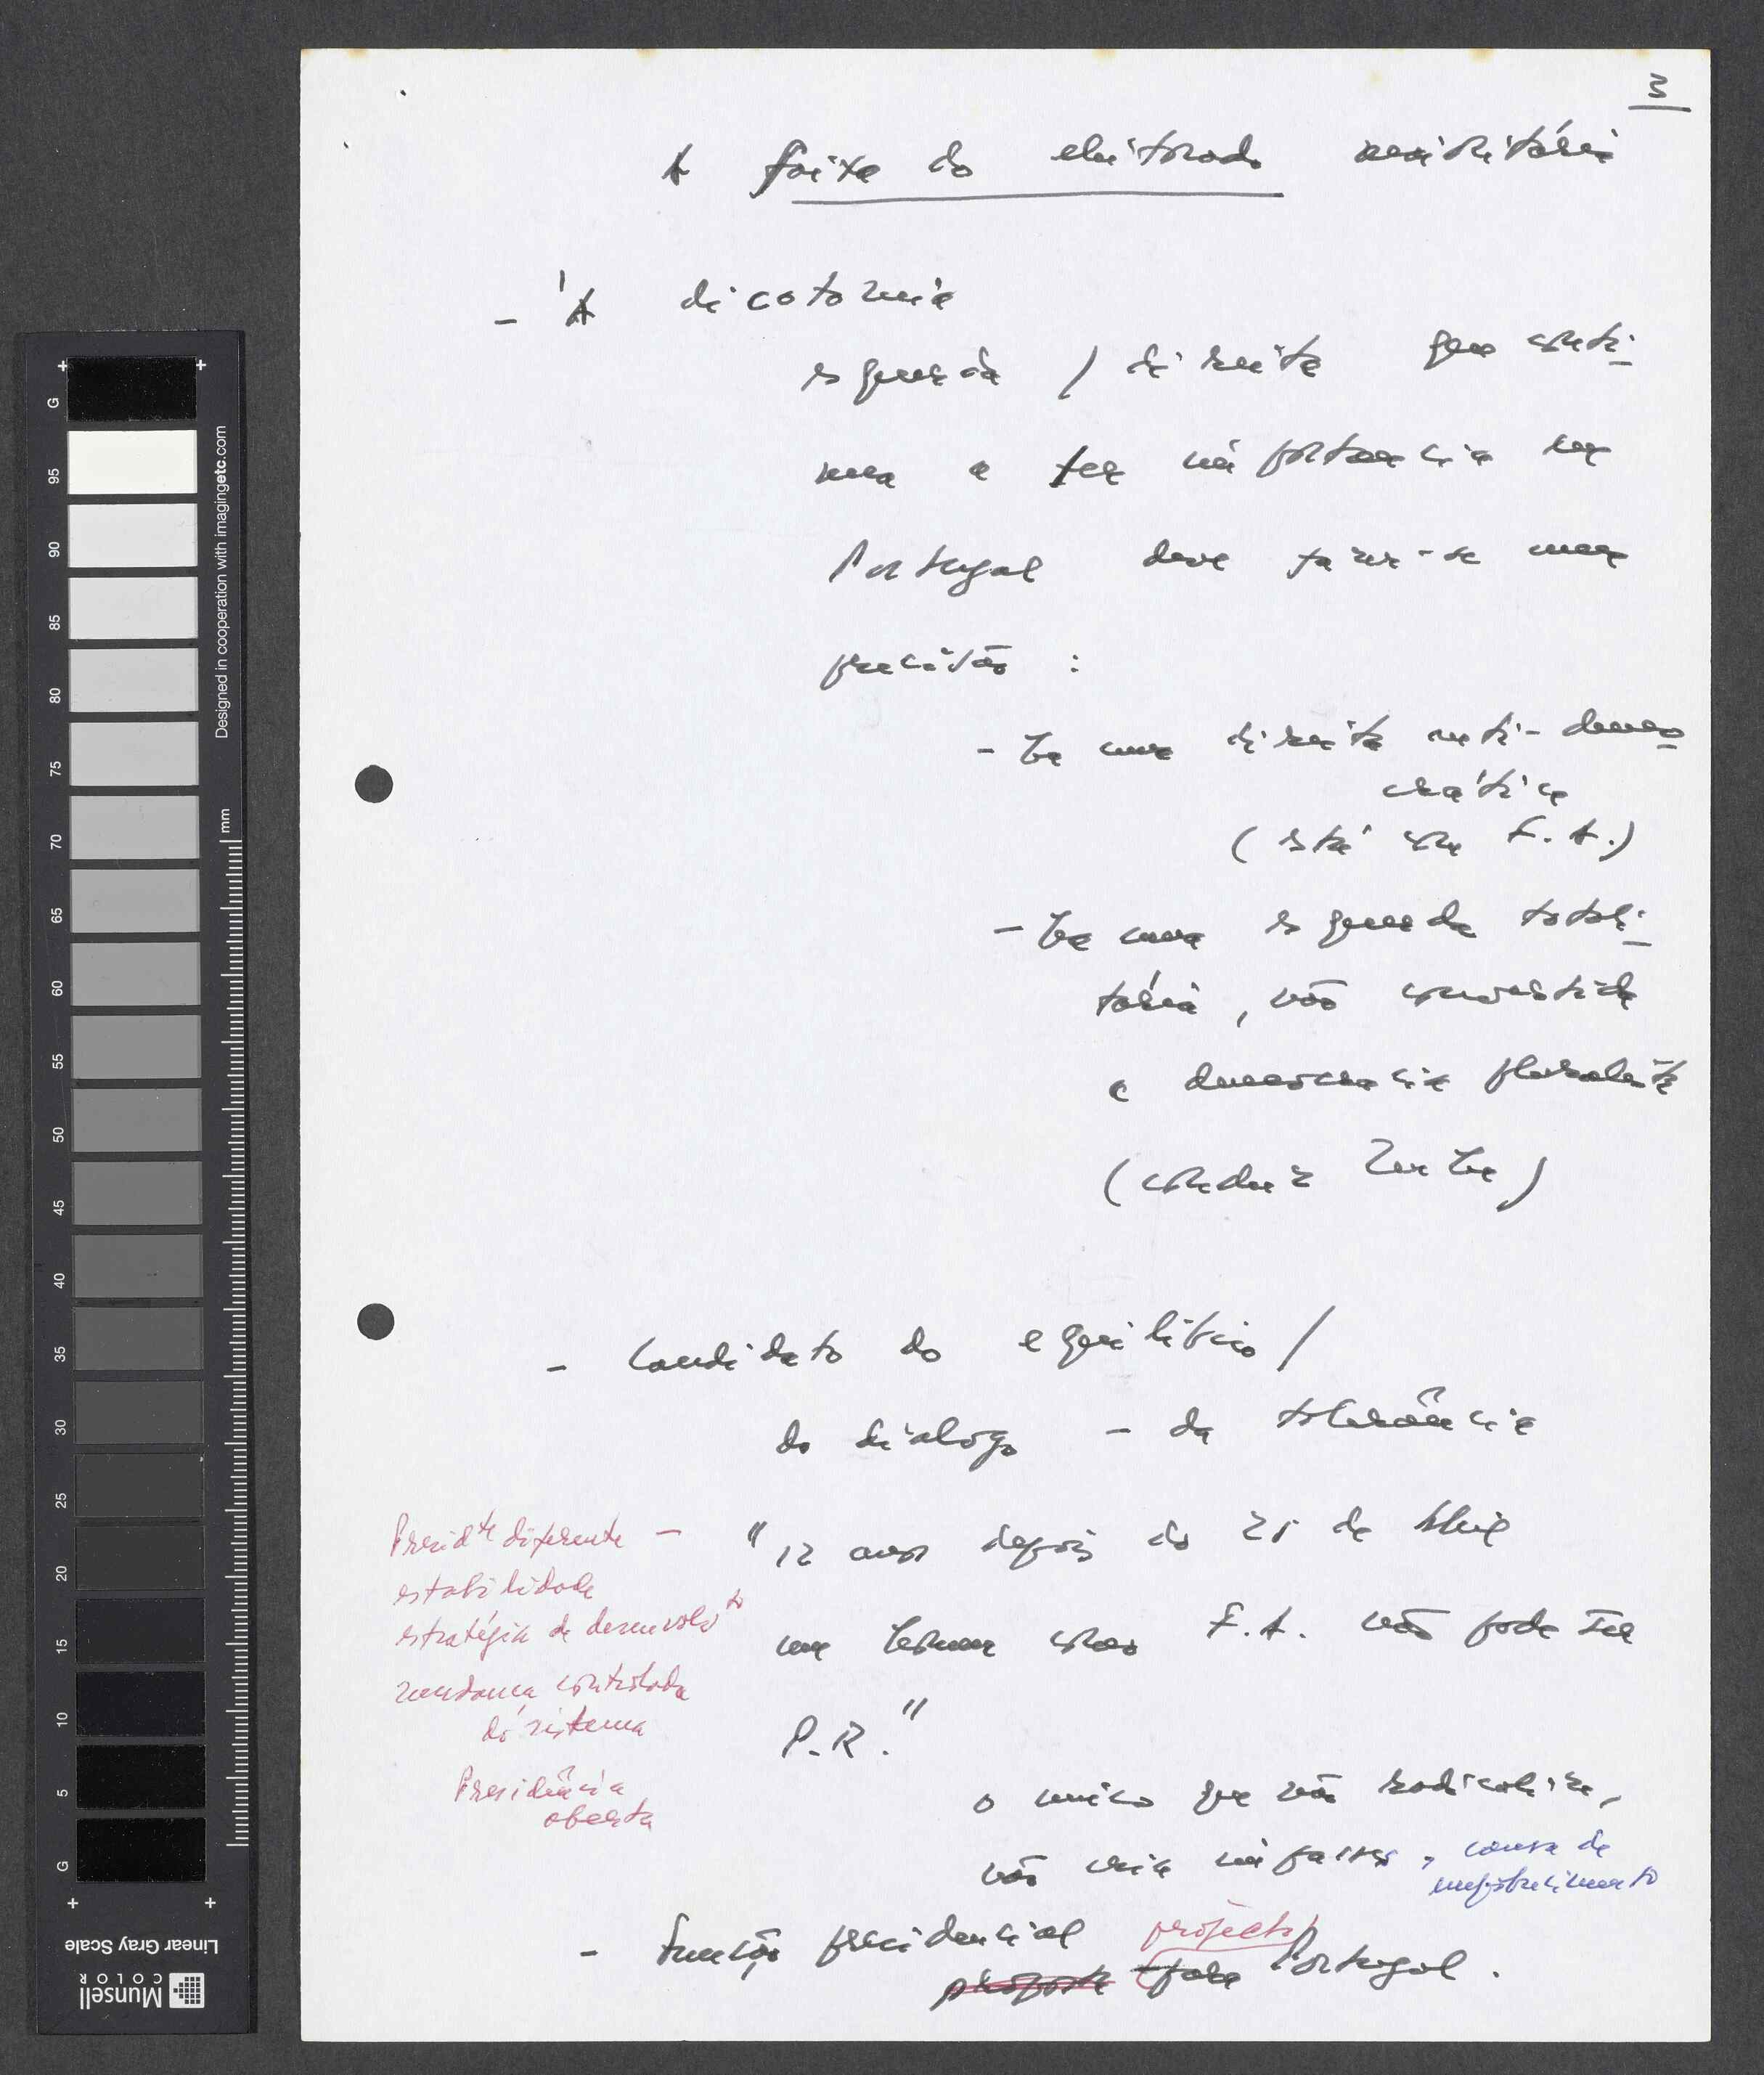 3
A faixa do eleitorado maioritário
- À dicotomia
esquerda / direita que conti-
nua a ter importancia em
Portugal deve fazer-se uma
precisão :
- Há uma direita anti-demo-
crática
(está com F. A.)
- Há uma esquerda totali-
tária, não convertida
à democracia pluralista
(conduz Zenha)
- Candidato do equilíbrio /
do diálogo - da tolerância
"12 anos depois do 25 de Abril
um homem como F. A. não pode ser
P.R."
o unico que não radicaliza,
não cria impasses, causa de
empobrecimento
- Função presidencial projecto
proposta para Portugal.
Presidte diferente -
estabilidade
estratégia de desenvolvto
mudança controlada
do sistema
Presidência
aberta
G 95 90 85 80 75 70 65 60 55 50 45 40 35 30 25 20 15 10 5 G
Designed in cooperation with imagingetc.com
mm
Linear Gray Scale
Munsell
COLOR